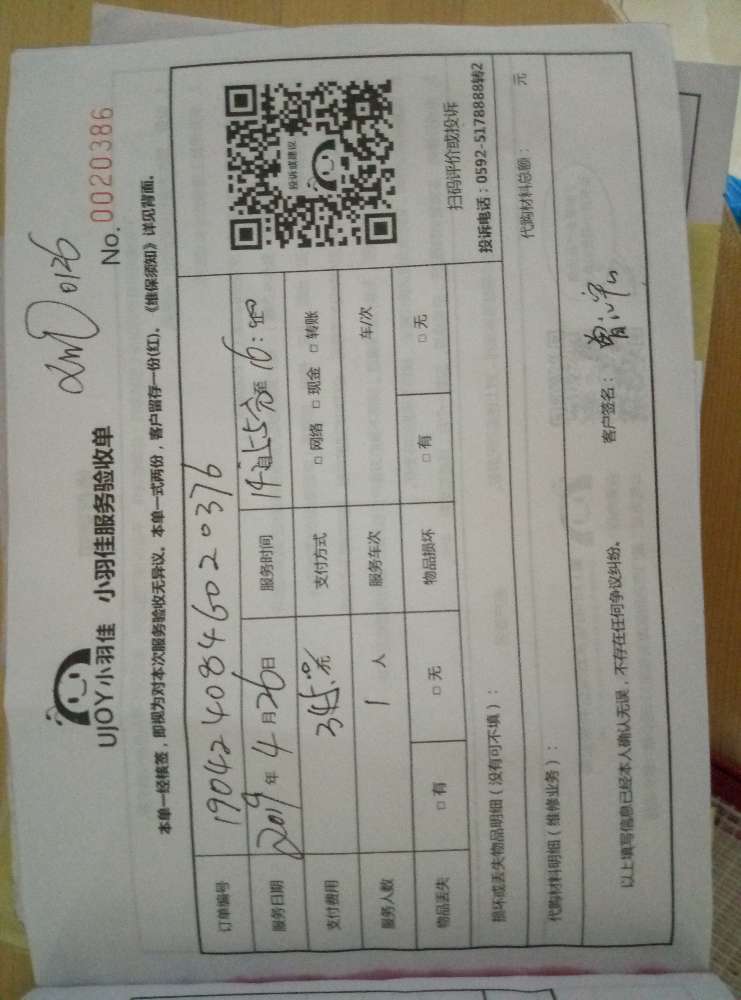 0126
UJOY小羽佳 小羽佳服务验收单 No. 0020386
本单一经核签，即视为对本次服务验收无异议。本单一式两份，客户留存一份(红)、《维保须知》详见背面。
订单编号 19042408460 20376
服务日期 2019 年 4 月 26 日 服务时间 14 自 55分 至 16：
支付费用 345.元 支付方式 □ 网络 □ 现金 □ 转账
服务人数 1 人 服务车次 车/次
物品丢失 □ 有 □ 无 物品损坏 □ 有 □ 无
投诉或建议
扫码评价或投诉
投诉电话：0592-5178888转2
损坏或丢失物品明细（没有可不填）：
代购材料明细（维修业务）： 代购材料总额： 元
以上填写信息已经本人确认无误，不存在任何争议纠纷。 客户签名：